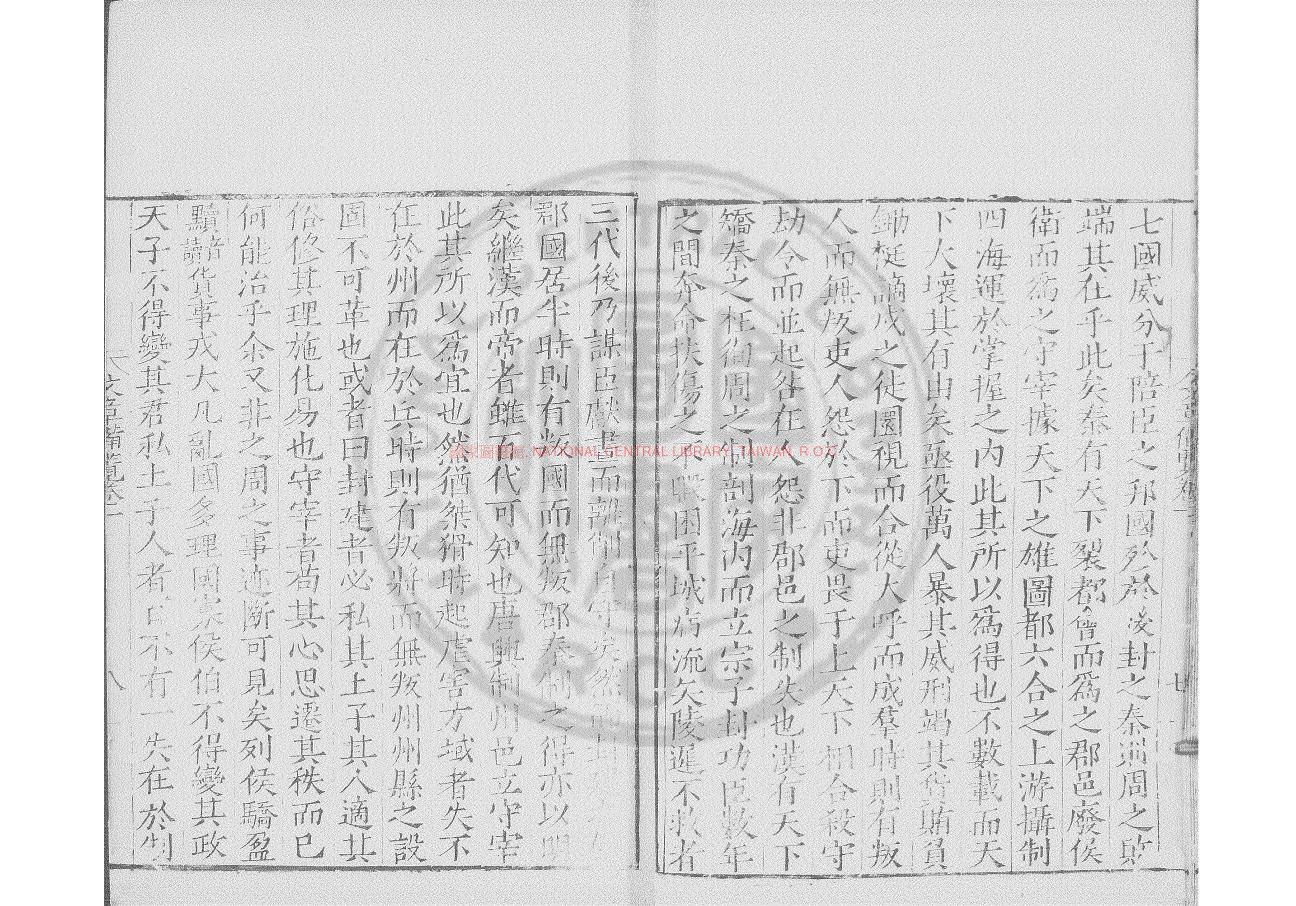 七國威分于陪臣之邦國殄於後封之秦則周之敗
端其在乎此矣秦有天下裂都會而爲之郡邑廢侯
衛而爲之守宰據天下之雄圖都六合之上游攝制
四海運於掌握之內此其所以爲得也不數載而天
下大壞其有由矣亟役萬人暴其威刑竭其貨賄負
鋤梃謫戍之徒圜視而合從大呼而成羣時則有叛
人而無叛吏人怨於下而吏畏于上天下相合殺守
劫令而並起咎在人怨非郡邑之制失也漢有天下
矯秦之枉徇周之制剖海內而立宗子封功臣數年
之間奔命扶傷之不暇困平城病流矢陵遲不救者
三代後乃謀臣獻畫而離削自守矣然而封
郡國居半時則有叛國而無叛郡秦制之得亦以明
矣繼漢而帝者雖百代可知也唐興制州邑立守宰
此其所以爲宜也然猶桀猾時起虐害方域者失不
在於州而在於兵時則有叛將而無叛州州縣之設
固不可革也或者曰封建者必私其土子其人適其
俗修其理施化易也守宰者苟其心思遷其秩而已
何能治乎余又非之周之事迹斷可見矣列侯驕盈
黷讀音貨事戎大凡亂國多理國寡侯伯不得變其政
天子不得變其君私土子人者百不有一失在於制
文章備覽卷二
八
國家圖書館, NATIONAL CENTRAL LIBRARY, TAIWAN, R.O.C